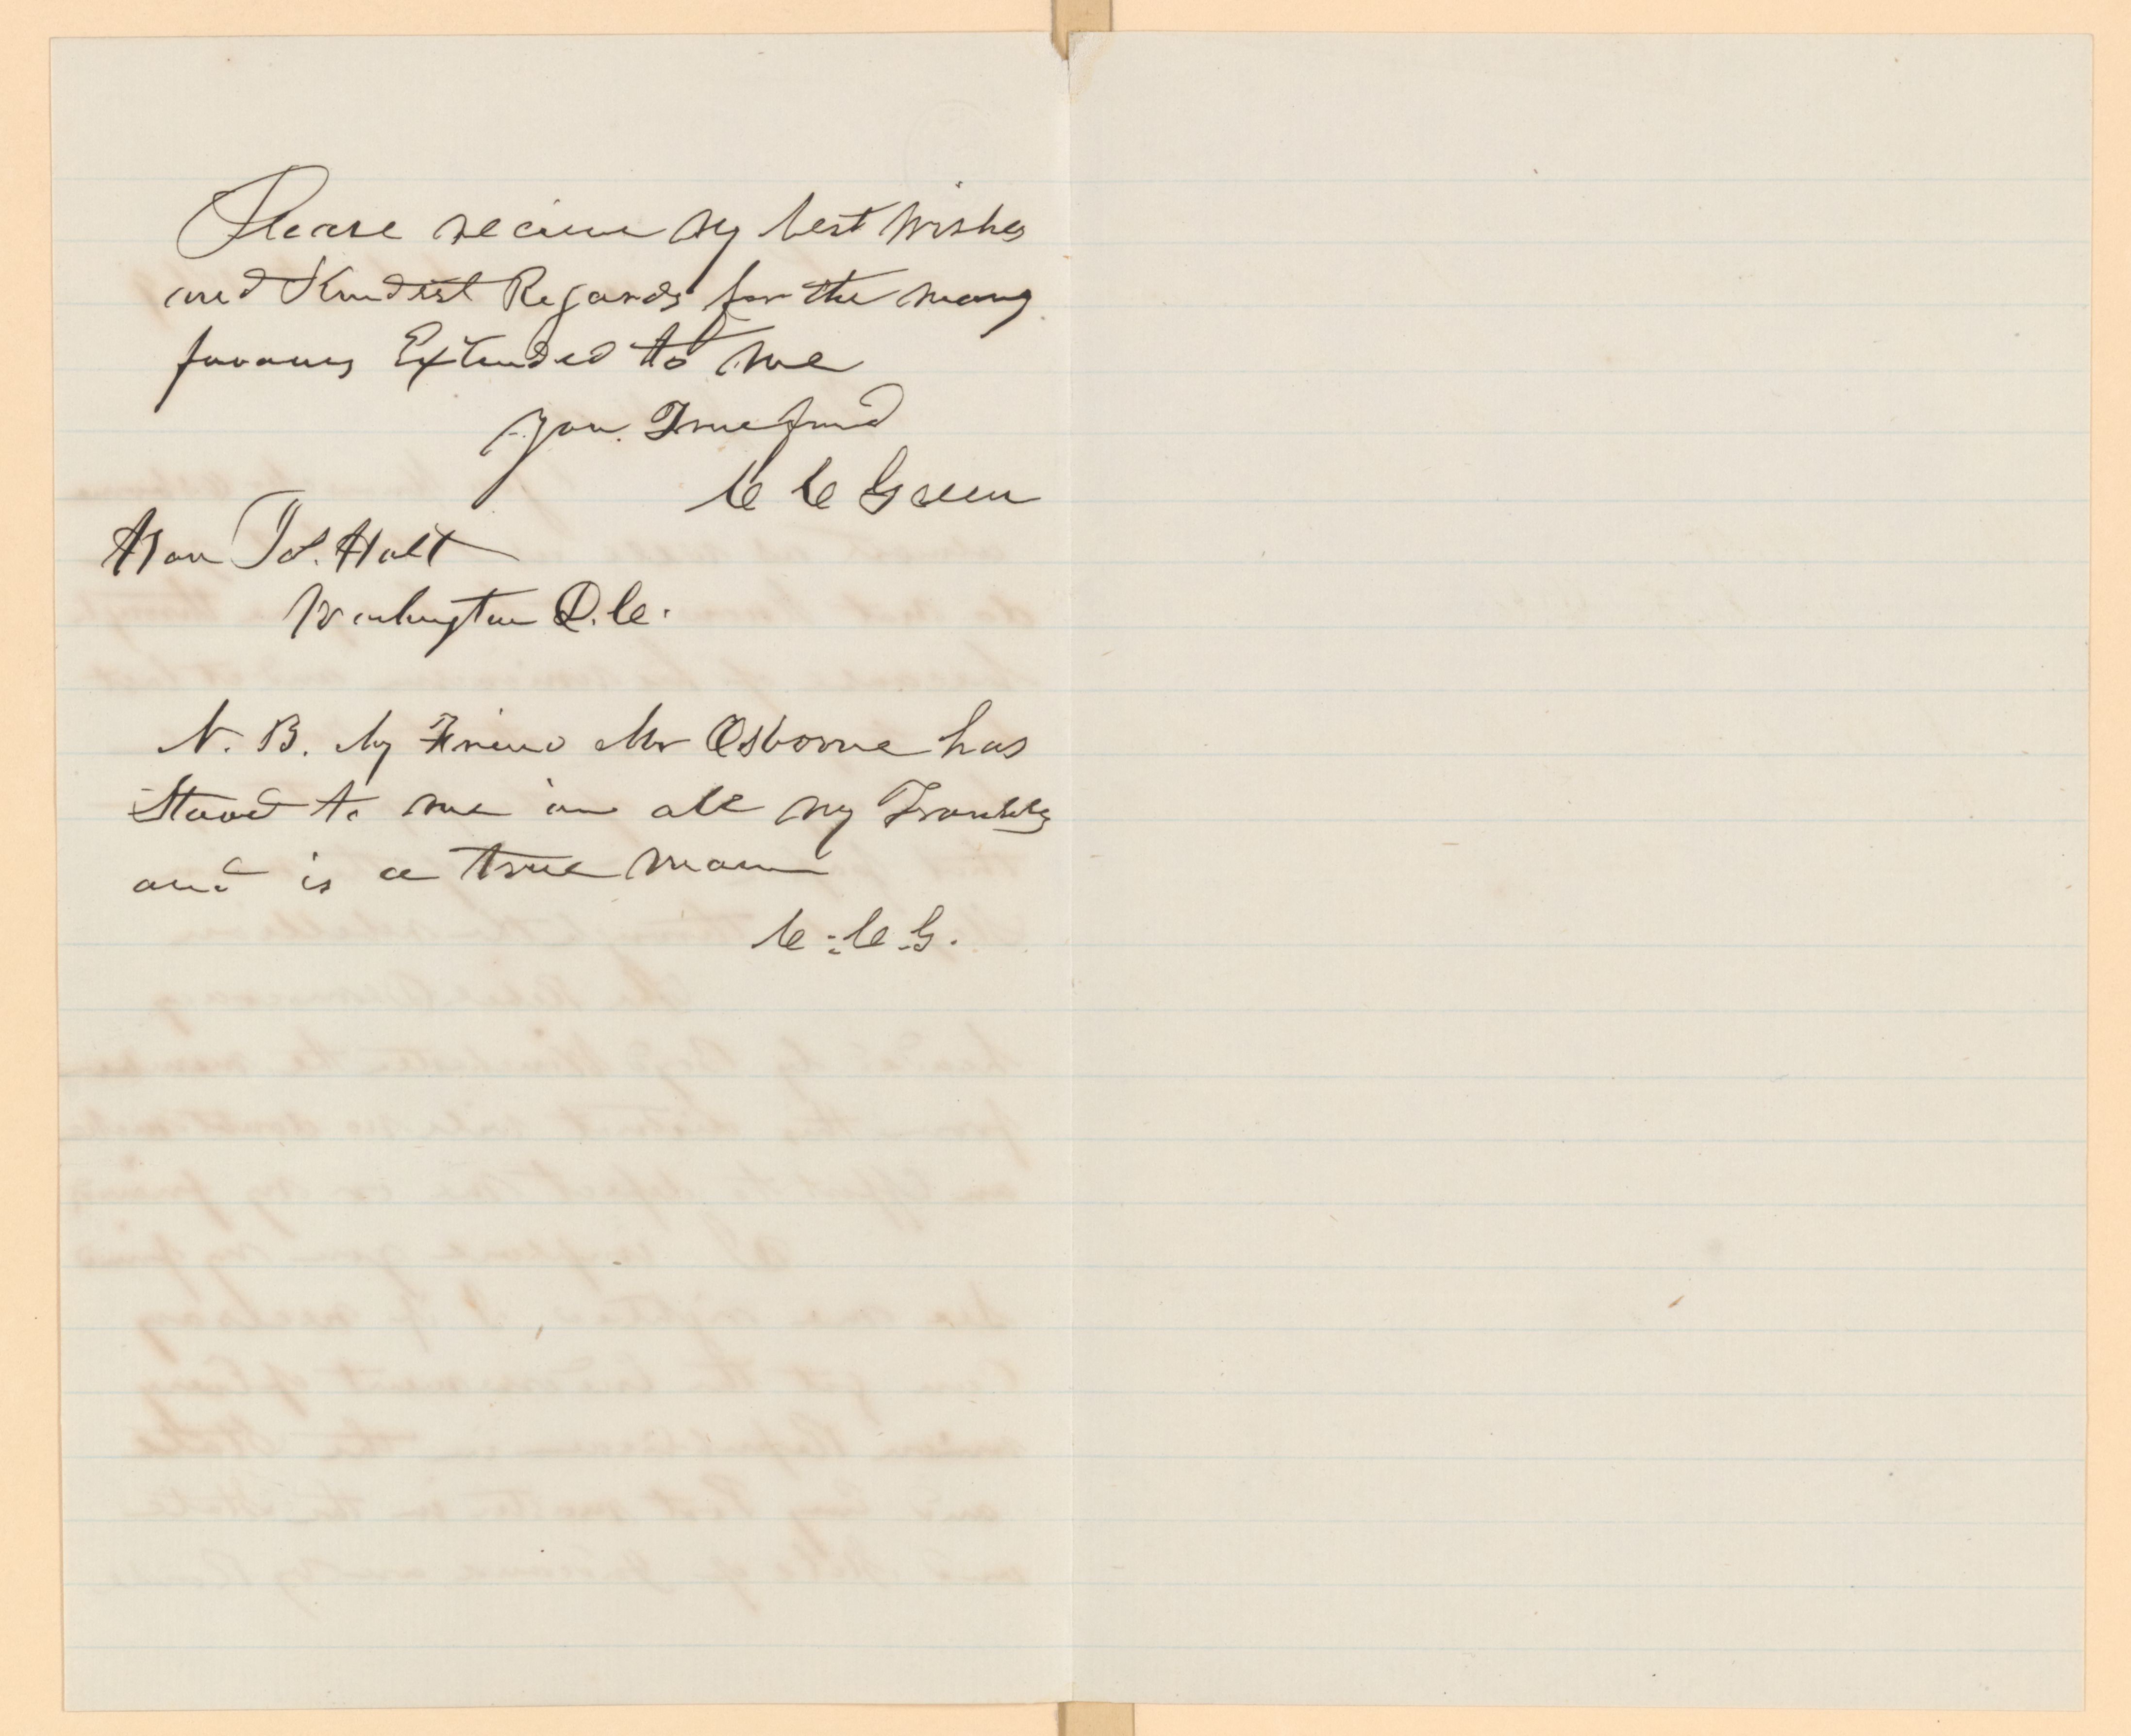 Please recieve my best wishes
and Kindest Regards for the many
favours Extended to me
Your True friend
C C Green
Hon Jos. Holt
Washington D.C.
N. B. My Friend Mr Osborne has
Stood to me in all my Troubles
and is a true man
C. C. G.